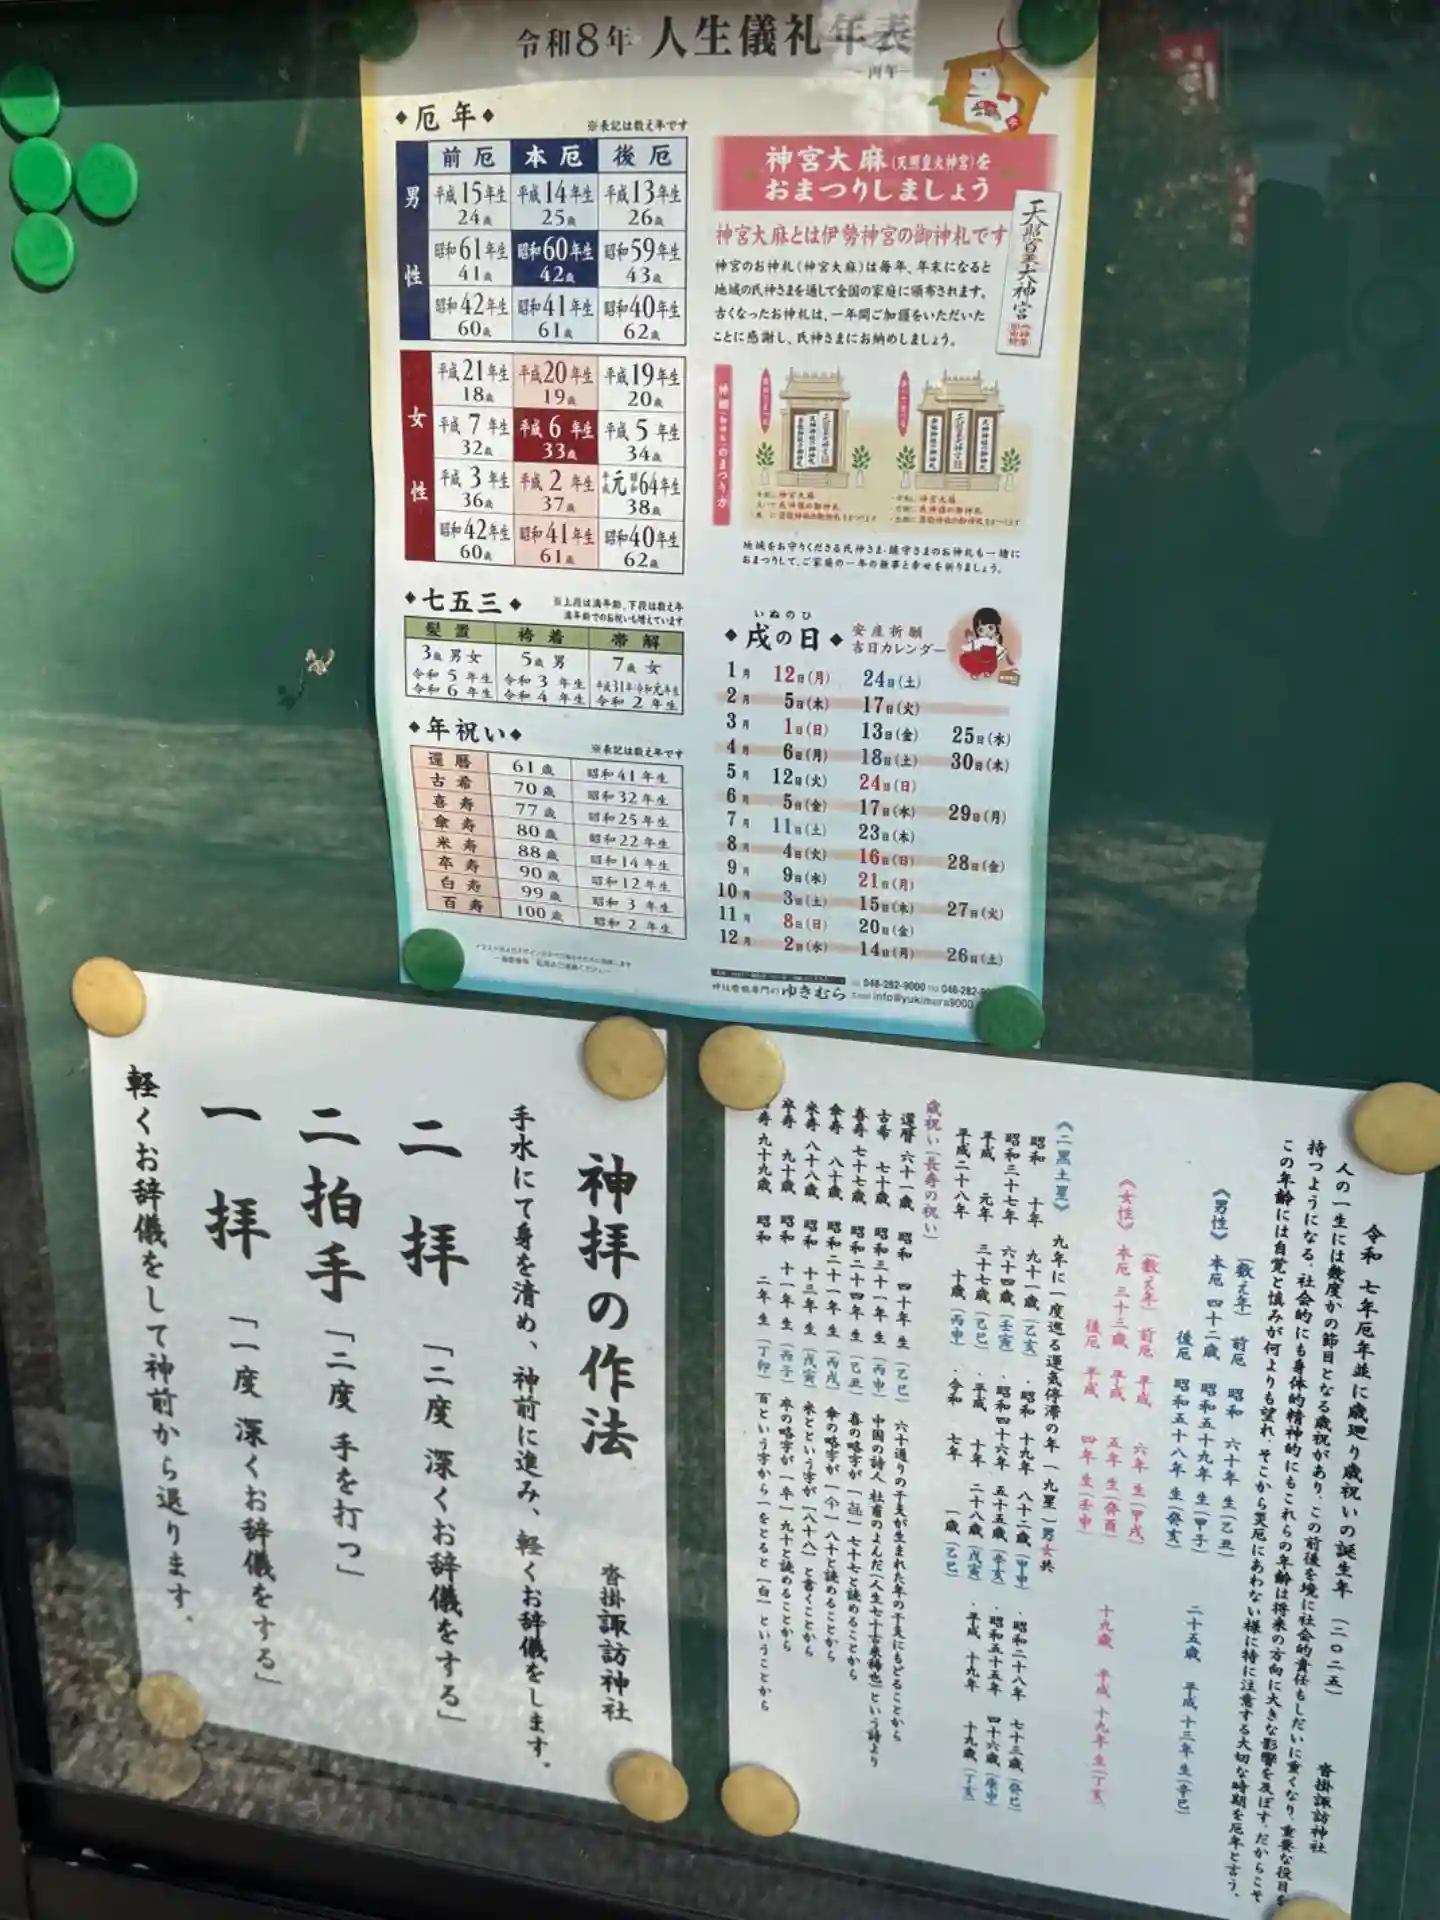 令和8年 人生儀礼年表
丙午
◆厄年◆
※表記は数え年です
前厄 本厄 後厄
男性
平成15年生 平成14年生 平成13年生
24歳 25歳 26歳
昭和61年生 昭和60年生 昭和59年生
41歳 42歳 43歳
昭和42年生 昭和41年生 昭和40年生
60歳 61歳 62歳
女性
平成21年生 平成20年生 平成19年生
18歳 19歳 20歳
平成7年生 平成6年生 平成5年生
32歳 33歳 34歳
平成3年生 平成2年生 平成元 昭和64年生
36歳 37歳 38歳
昭和42年生 昭和41年生 昭和40年生
60歳 61歳 62歳
◆七五三◆
※上段は満年齢、下段は数え年
満年齢でのお祝いも増えています
髪置 袴着 帯解
3歳 男女 5歳 男 7歳 女
令和5年生 令和3年生 平成31年・令和元年生
令和6年生 令和4年生 令和2年生
◆年祝い◆
※表記は数え年です
還暦 61歳 昭和41年生
古希 70歳 昭和32年生
喜寿 77歳 昭和25年生
傘寿 80歳 昭和22年生
米寿 88歳 昭和14年生
卒寿 90歳 昭和12年生
白寿 99歳 昭和3年生
百寿 100歳 昭和2年生
神宮大麻(天照皇大神宮)を
おまつりしましょう
天照皇大神宮
神宮大麻とは伊勢神宮の御神札です
神宮のお神札(神宮大麻)は毎年、年末になると
地域の氏神さまを通して全国の家庭に頒布されます。
古くなったお神札は、一年間ご加護をいただいた
ことに感謝し、氏神さまにお納めしましょう。
神宮大麻
氏神様の御神札
崇敬神社の御神札
神宮大麻
氏神様の御神札
崇敬神社の御神札
地域をお守りくださる氏神さま・鎮守さまのお神札も一緒に
おまつりして、ご家庭の一年の無事と幸せを祈りましょう。
いぬのひ
◆戌の日◆ 安産祈願
吉日カレンダー
1月 12日(月) 24日(土)
2月 5日(木) 17日(火)
3月 1日(日) 13日(金) 25日(水)
4月 6日(月) 18日(土) 30日(木)
5月 12日(火) 24日(日)
6月 5日(金) 17日(水) 29日(月)
7月 11日(土) 23日(木)
8月 4日(火) 16日(日) 28日(金)
9月 9日(水) 21日(月)
10月 3日(土) 15日(木) 27日(火)
11月 8日(日) 20日(金)
12月 2日(水) 14日(月) 26日(土)
ゆきむら
048-282-9000
info@yukimura9000
神拝の作法
沓掛諏訪神社
手水にて身を清め、神前に進み、軽くお辞儀をします。
二拝 「二度 深くお辞儀をする」
二拍手 「二度 手を打つ」
一拝 「一度 深くお辞儀をする」
軽くお辞儀をして神前から退ります。
令和 七年厄年並に歳廻り歳祝いの誕生年 (二〇二五) 沓掛諏訪神社
人の一生には数度かの節目となる歳祝があり、この前後を境に社会的責任もしだいに重くなり、重要な役目を
持つようになる、社会的にも身体的精神的にもこれらの年齢は将来の方向に大きな影響を及ぼす。だからこそ
この年齢には自覚と慎みが何よりも望れ、そこから災厄にあわない様に特に注意する大切な時期を厄年と言う。
(数え年) 前厄 昭和 六十年 生(乙丑)
《男性》 本厄 四十二歳 昭和五十九年 生(甲子) 二十五歳 平成十三年生(辛巳)
後厄 昭和五十八年 生(癸亥)
(数え年) 前厄 平成 六年 生(甲戌)
《女性》 本厄 三十三歳 平成 五年 生(癸酉) 十九歳 平成十九年生(丁亥)
後厄 平成 四年 生(壬申)
《二黒土星》 九年に一度巡る運気停滞の年(九星)男女共
昭和 十年 九十一歳(乙亥)・昭和 十九年 八十二歳(甲申)・昭和二十八年 七十三歳(癸巳)
昭和三十七年 六十四歳(壬寅)・昭和四十六年 五十五歳(辛亥)・昭和五十五年 四十六歳(庚申)
平成 元年 三十七歳(己巳)・平成 十年 二十八歳(戊寅)・平成 十九年 十九歳(丁亥)
平成二十八年 十歳(丙申)・令和 七年 一歳(乙巳)
歳祝い(長寿の祝い)
還暦 六十一歳 昭和 四十年 生(乙巳) 六十通りの干支が生まれた年の干支にもどることから
古希 七十歳 昭和三十一年 生(丙申) 中国の詩人 杜甫のよんだ「人生七十古来稀也」という詩より
喜寿 七十七歳 昭和二十四年 生(己丑) 喜の略字が「㐂」七十七と読めることから
傘寿 八十歳 昭和二十一年 生(丙戌) 傘の略字が「仐」八十と読めることから
米寿 八十八歳 昭和 十三年 生(戊寅) 米という字が「八十八」と書くことから
卒寿 九十歳 昭和 十一年 生(丙子) 卒の略字が「卆」九十と読めることから
寿 九十九歳 昭和 二年 生(丁卯) 百という字から一をとると「白」ということから